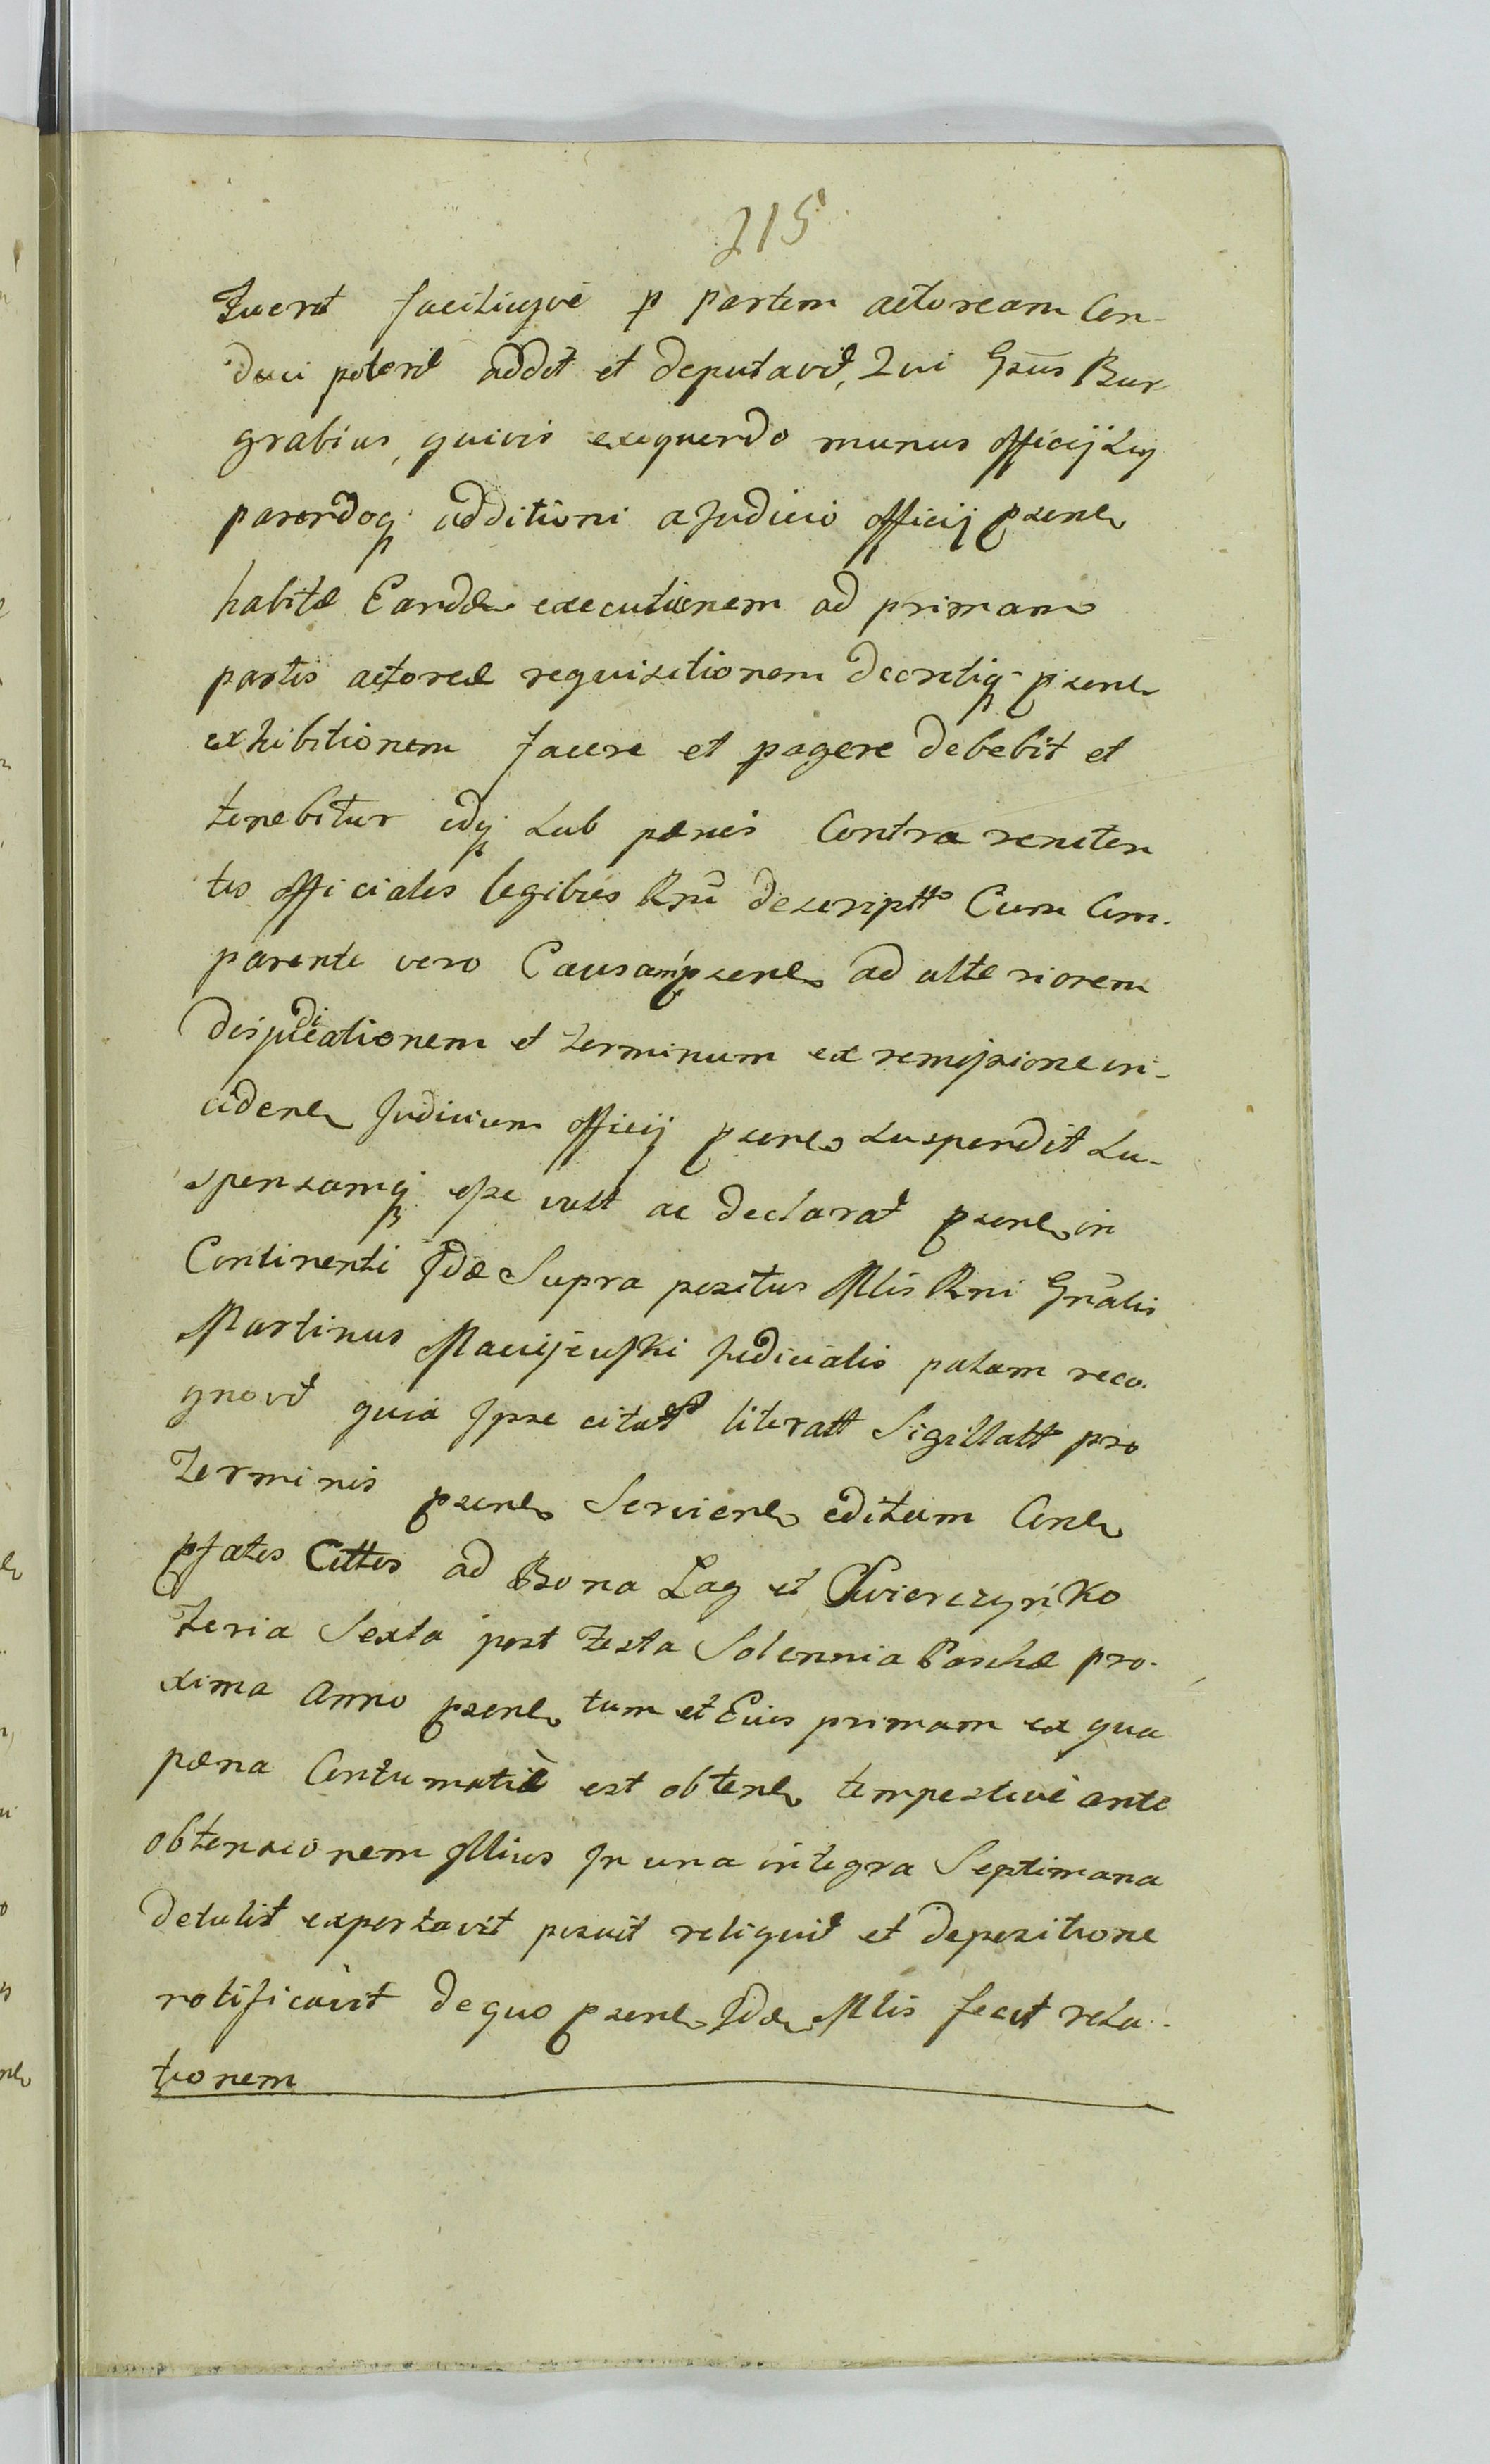 215
fuerit faciliusvè p partem actoream Con-
duci poterit addit et deputavit, Qui Gsus Bur
grabius, quivis exequendo munus officij sui
parendoq; additioni a Judicio officij psenl
habitæ Eandem executionem ad primam
partis actoreæ requisitionem decretiq; psenl
exhibitionem facere et pagere debebit et
tenebitur idq; sub pænis Contra reniten
tes officiales legibus Rni descriptto Cum Com-
parente vero Causam psenl ad ulteriorem
dijudicationem et terminum ex remissione in-
cidenl Judicium officij psenl suspendit su-
spensamq; esse vult ac declarat psenl in
Continenti Idem Supra positus Mlis Rni Gnalis
Martinus Maciejewski Judicialis palam reco-
gnovit quia Ipse citatt literatt Sigillatt pro
Terminis psenl Servienl editam Conl
pfatos Cittos ad Bona Lag et Chwierczynko
feria Sexta post festa Solennia Paschæ pro-
xima Anno psenl tum et Eius primam ex qua
pæna Contumatiæ est obtenl tempestivè ante
obtensionem Illius In una integra Septimana
detulit exportavit posuit reliquit et depositione
notificavit de quo psenl Idem Mlis fecit rela-
tionem